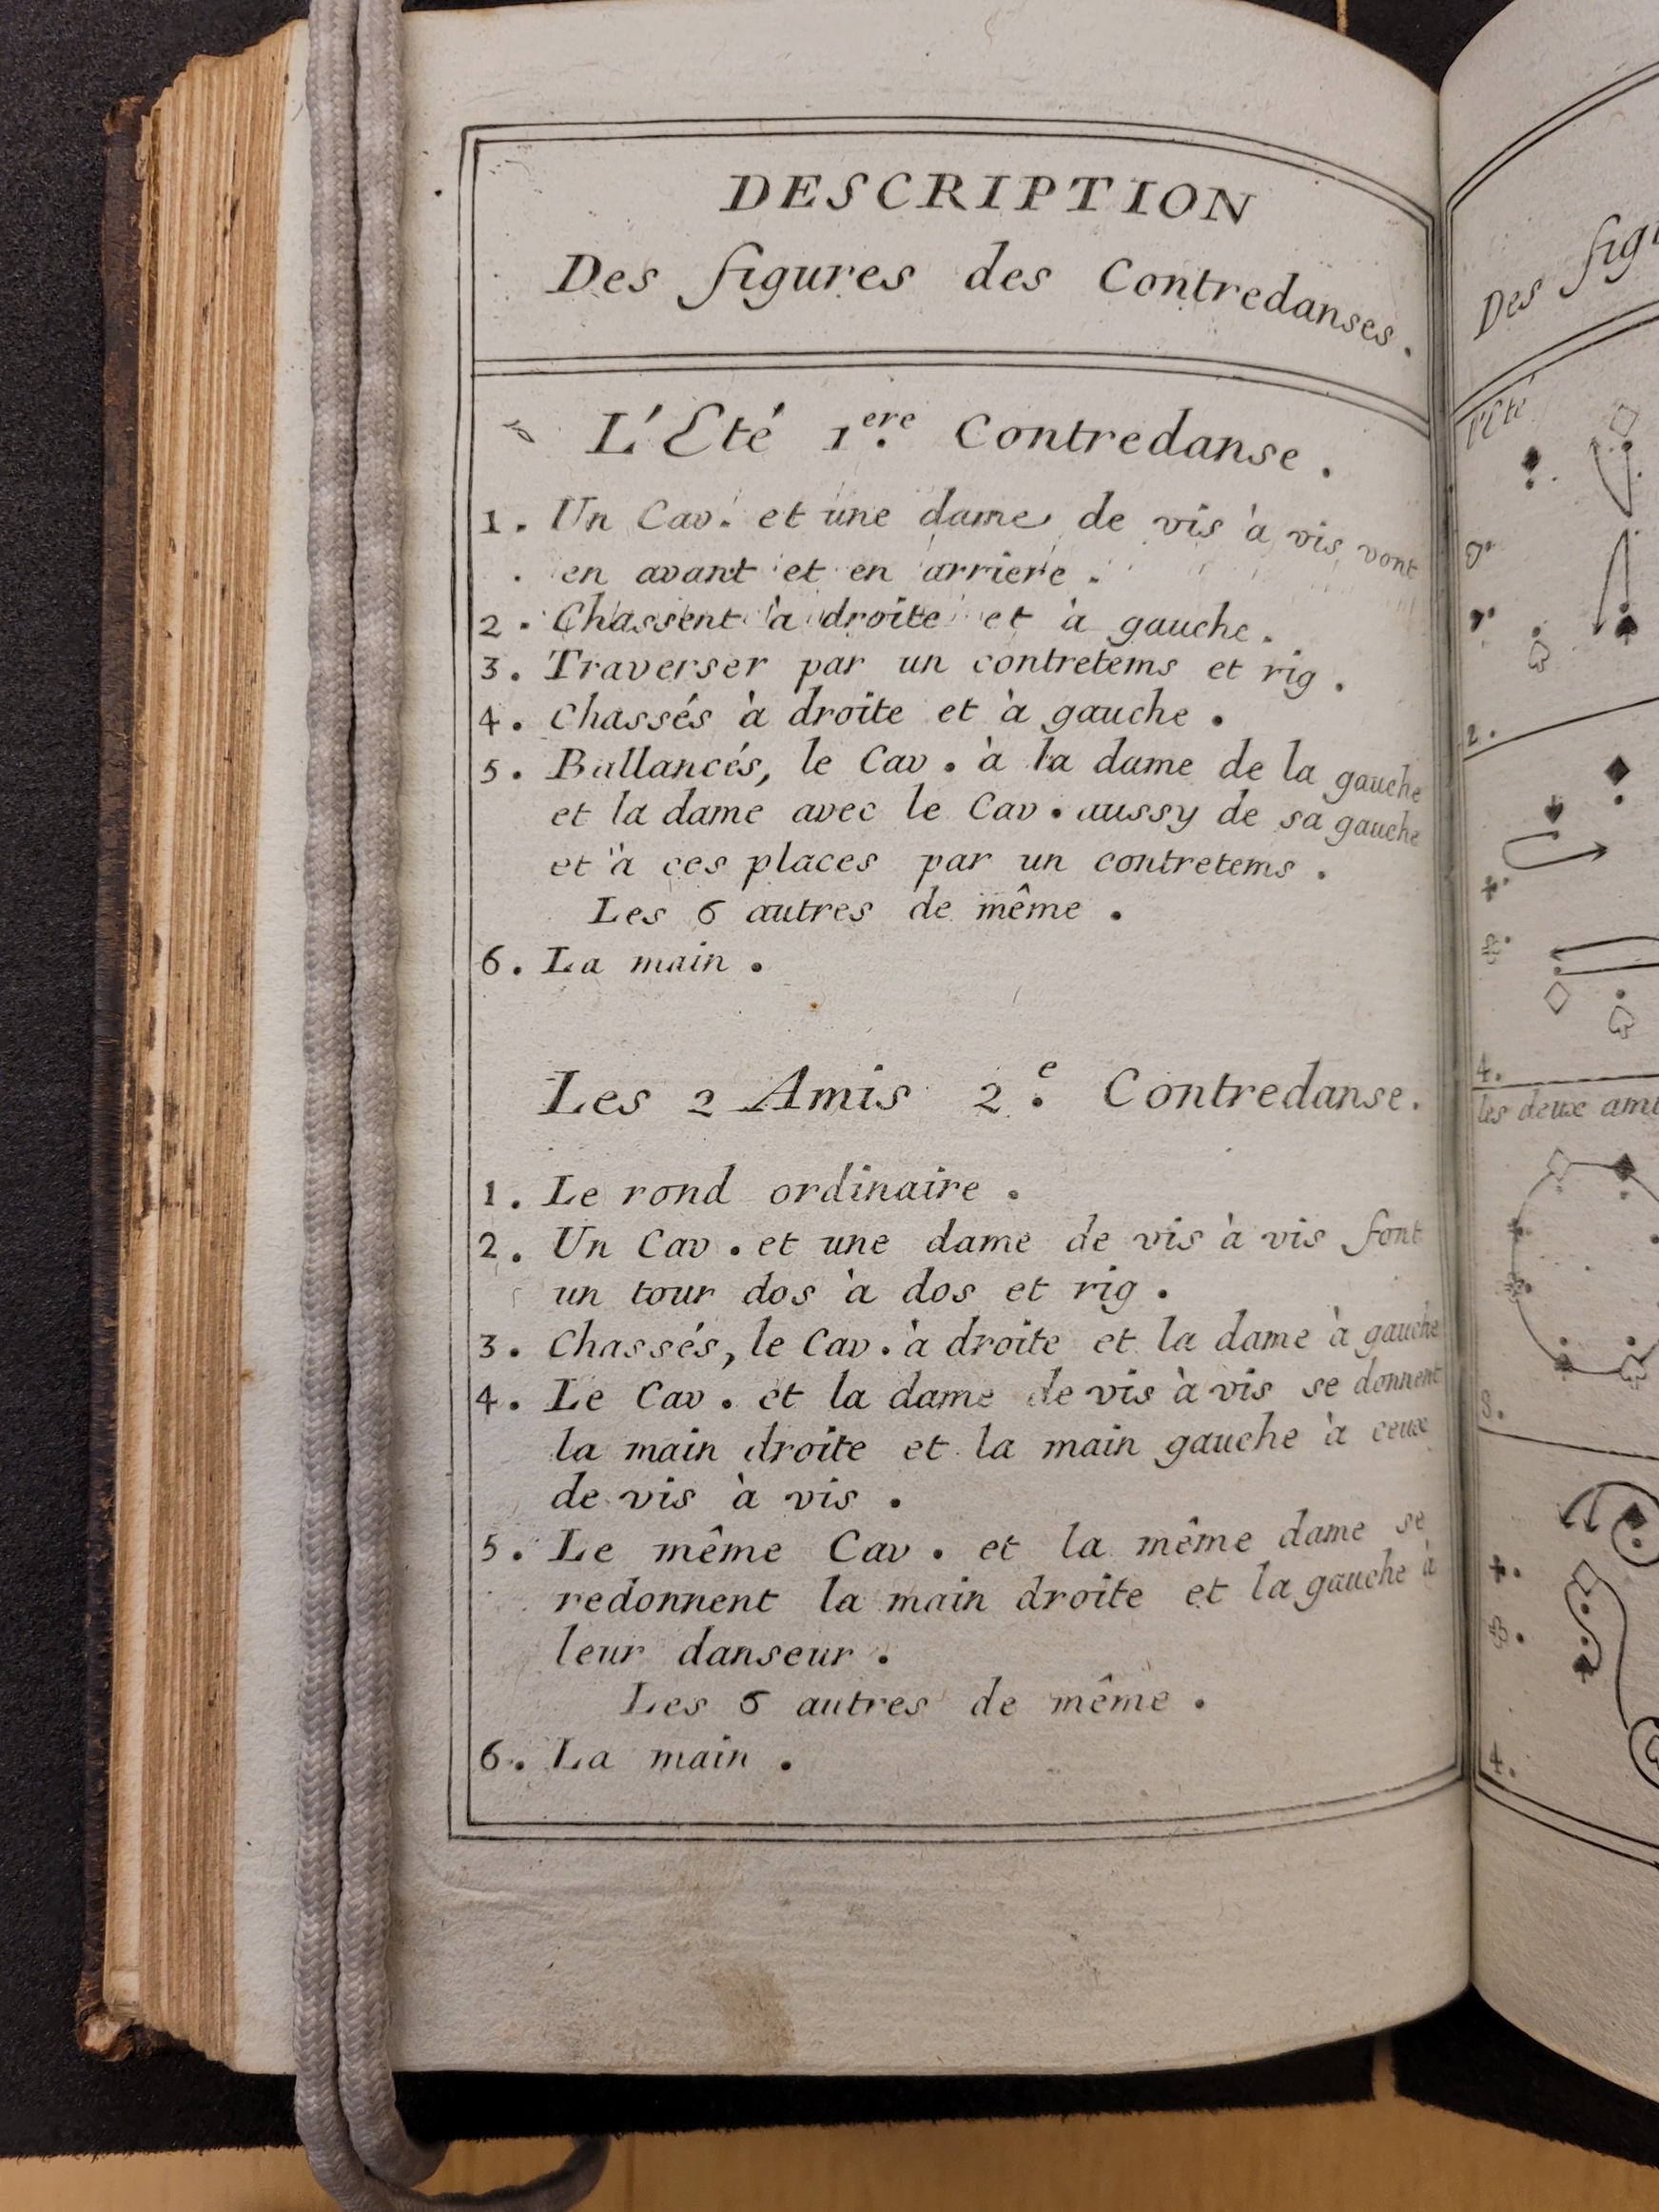 DESCRIPTION
Des figures des Contredanses.
L'Eté 1.ere Contredanse.
1. Un Cav. et une dame de vis à vis vont
en avant et en arriere.
2. Chassent à droite et à gauche.
3. Traverser par un contretems et rig.
4. Chassés à droite et à gauche.
5. Ballancés, le Cav. à la dame de la gauche
et la dame avec le Cav. aussy de sa gauche
et à ces places par un contretems.
Les 6 autres de même.
6. La main.
Les 2 Amis 2.e Contredanse.
1. Le rond ordinaire.
2. Un Cav. et une dame de vis à vis font
un tour dos à dos et rig.
3. Chassés, le Cav. à droite et la dame à gauche
4. Le Cav. et la dame de vis à vis se donnent
la main droite et la main gauche à ceux
de vis à vis.
5. Le même Cav. et la même dame se
redonnent la main droite et la gauche à
leur danseur.
Les 6 autres de même.
6. La main.
Des
l'Eté
2.
4.
les deux
3.
4.